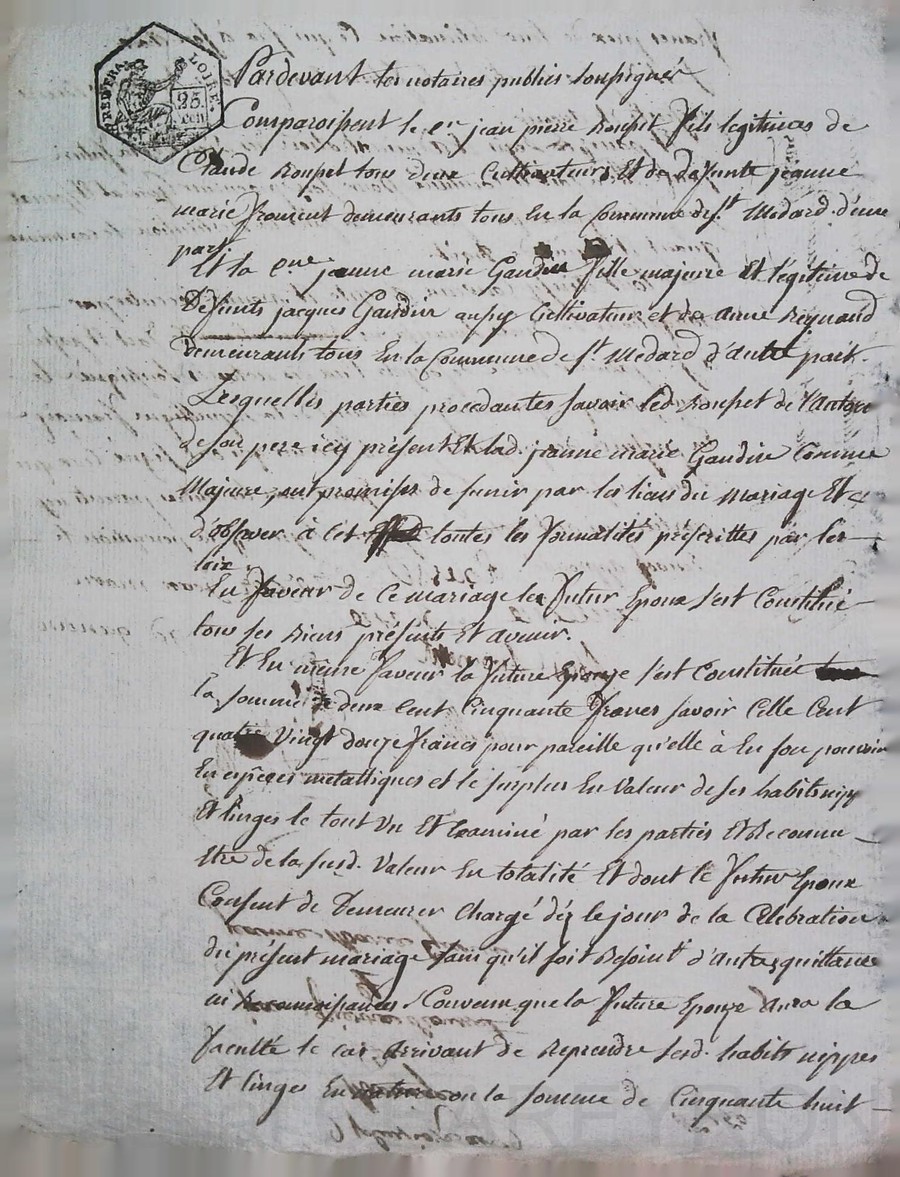 REP. FRA. LOIRE.
25. CEN
Pardevant les notaires publics soussignés
Comparoissent le Cen jean pierre Rousset fils legitimes de
Claude Rousset tous deux Cultivateurs Et de defunte jeanne
marie frourent demeurants tous En la Commune de St Medard d'une
part.
Et la Cne jeanne marie Gaudin fille majeure Et légitime de
Defunts jacques Gaudin aussy Cultivateur et de Anne Reynaud
demeurants tous En la Commune de St Medard d'autre part.
Lesquelles parties procedantes savoir led. Rousset de l'Autorité
de son pere icy présent Et lad. jeanne marie Gaudin Comme
Majeure, ont promises de s'unir par les liens du Mariage Et
d'observer à cet toutes les formalités préscrittes par les
loix.
En faveur de Ce mariage le futur Epoux s'est Constitué
tous ses Biens présents Et avenir.
Et En même faveur la future Epouze s'est Constituée
la somme de deux Cent Cinquante francs savoir Celle Cent
quatre Vingt douze francs pour pareille qu'elle à En son pouvoir
En espèces metalliques et le surplus En Valeur de ses habits nipp
Et linges le tout Vu Et Examiné par les parties Et Reconnu
Etre de la susd. Valeur En totalité Et dont le futur Epoux
Consent de Demeurer Chargé dès le jour de la Celebration
du présent mariage sans qu'il soit Besoint d'autres quittance
ni Reconnoissances, Convenu que la future Epouze Aura la
faculté le cas Arrivant de Reprendre sesd. habits nippes
Et linges En nature ou la somme de Cinquante huit